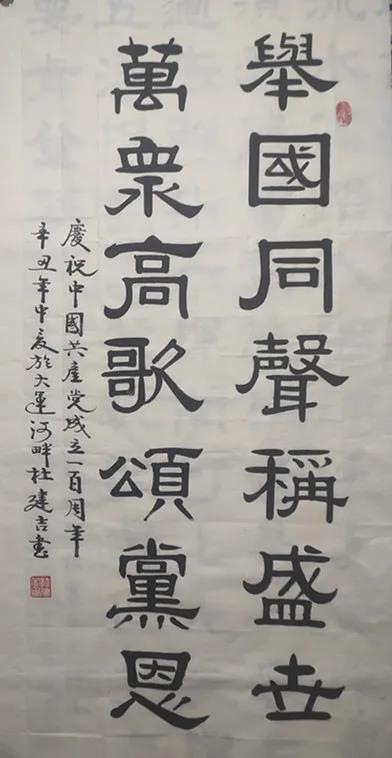 舉國同聲稱盛世
萬眾高歌頌黨恩
慶祝中國共產党成立一百周年
辛丑年中夏於大運河畔杜建吉書